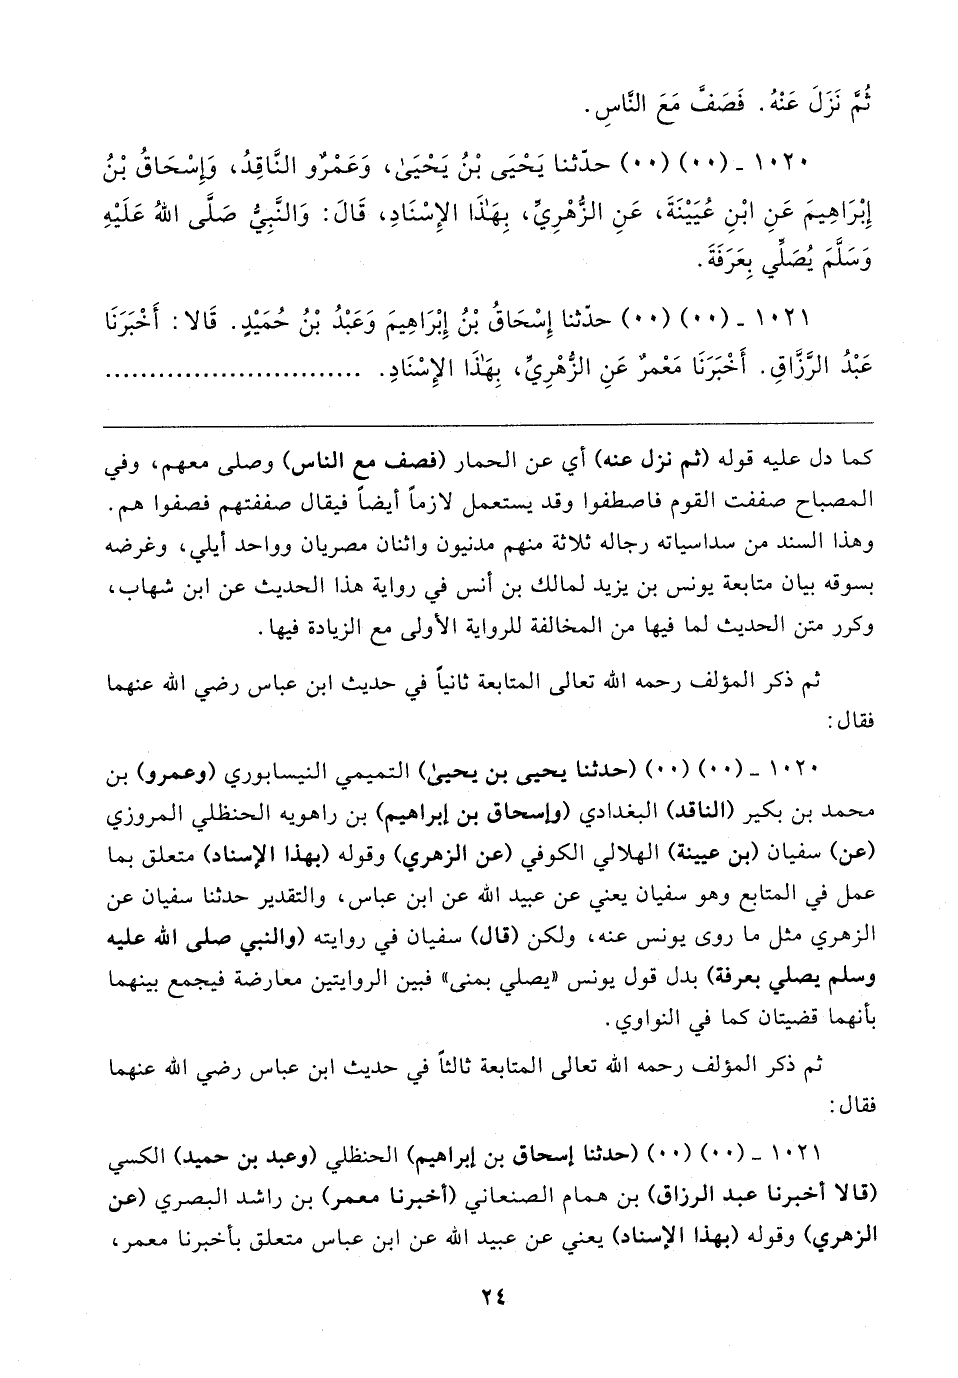 ثُمَّ نَزَلَ عَنْهُ. فَصَفَّ مَعَ النَّاسِ.
١٠٢٠ ـ (٠٠) (٠٠) حدّثنا يَحْيَى بْنُ يَحْيَىٰ، وَعَمْرٌو النَّاقِدُ، وَإِسْحَاقُ بْنُ
إِبْرَاهِيمَ عَنِ ابْنِ عُيَيْنَةَ، عَنِ الزُّهْرِيِّ، بِهَٰذَا الإِسْنَادِ، قَالَ: وَالنَّبِيُّ صَلَّى اللهُ عَلَيْهِ
وَسَلَّمَ يُصَلِّي بِعَرَفَةَ.
١٠٢١ ـ (٠٠) (٠٠) حدّثنا إِسْحَاقُ بْنُ إِبْرَاهِيمَ وَعَبْدُ بْنُ حُمَيْدٍ. قَالا: أَخْبَرَنَا
عَبْدُ الرَّزَّاقِ. أَخْبَرَنَا مَعْمرٌ عَنِ الزُّهْرِيِّ، بِهَٰذَا الإِسْنَادِ. .............................
كما دل عليه قوله (ثم نزل عنه) أي عن الحمار (فصف مع الناس) وصلى معهم، وفي
المصباح صففت القوم فاصطفوا وقد يستعمل لازماً أيضاً فيقال صففتهم فصفوا هم.
وهذا السند من سداسياته رجاله ثلاثة منهم مدنيون واثنان مصريان وواحد أيلي، وغرضه
بسوقه بيان متابعة يونس بن يزيد لمالك بن أنس في رواية هذا الحديث عن ابن شهاب،
وكرر متن الحديث لما فيها من المخالفة للرواية الأولى مع الزيادة فيها.
ثم ذكر المؤلف رحمه الله تعالى المتابعة ثانياً في حديث ابن عباس رضي الله عنهما
فقال:
١٠٢٠ ـ (٠٠) (٠٠) (حدثنا يحيى بن يحيىٰ) التميمي النيسابوري (وعمرو) بن
محمد بن بكير (الناقد) البغدادي (وإسحاق بن إبراهيم) بن راهويه الحنظلي المروزي
(عن) سفيان (بن عيينة) الهلالي الكوفي (عن الزهري) وقوله (بهذا الإسناد) متعلق بما
عمل في المتابع وهو سفيان يعني عن عبيد الله عن ابن عباس، والتقدير حدثنا سفيان عن
الزهري مثل ما روى يونس عنه، ولكن (قال) سفيان في روايته (والنبي صلى الله عليه
وسلم يصلي بعرفة) بدل قول يونس «يصلي بمنى» فبين الروايتين معارضة فيجمع بينهما
بأنهما قضيتان كما في النواوي.
ثم ذكر المؤلف رحمه الله تعالى المتابعة ثالثاً في حديث ابن عباس رضي الله عنهما
فقال:
١٠٢١ ـ (٠٠) (٠٠) (حدثنا إسحاق بن إبراهيم) الحنظلي (وعبد بن حميد) الكسي
(قالا أخبرنا عبد الرزاق) بن همام الصنعاني (أخبرنا معمر) بن راشد البصري (عن
الزهري) وقوله (بهذا الإسناد) يعني عن عبيد الله عن ابن عباس متعلق بأخبرنا معمر،
٢٤